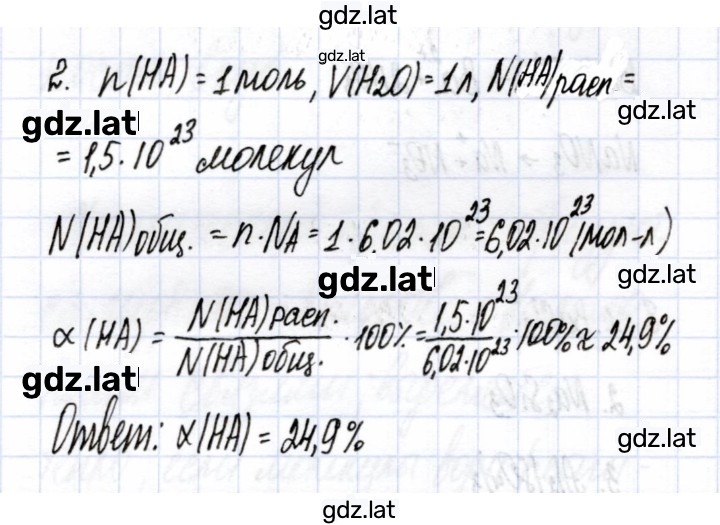 gdz.lat
gdz.lat
2. n(HA) = 1 моль, V(H₂O) = 1 л, N(HA)расп =
gdz.lat
= 1,5·10²³ молекул
N(HA)общ. = n·Nₐ = 1·6,02·10²³ = 6,02·10²³ (мол-л)
gdz.lat
gdz.lat
α(HA) = N(HA)расп. / N(HA)общ. · 100% = 1,5·10²³ / 6,02·10²³ · 100% ≈ 24,9%
gdz.lat
Ответ: α(HA) = 24,9%
gdz.lat
gdz.lat